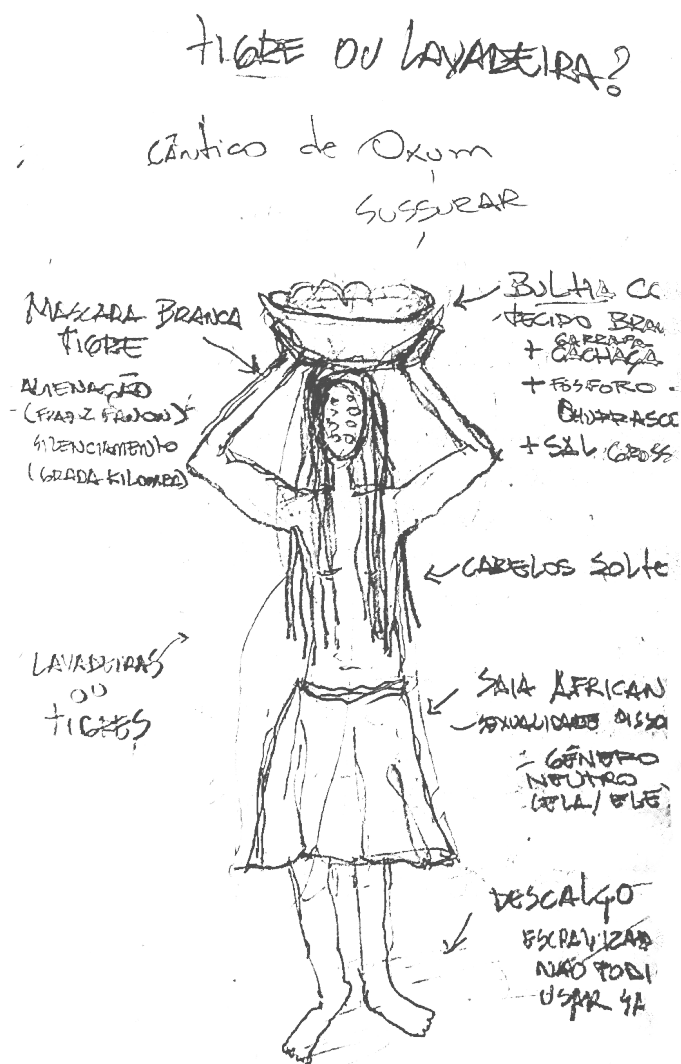 TIGRE OU LAVADEIRA?
CÂNTICO de Oxum
SUSSURAR
MASCARA BRANCA
TIGRE
ALIENAÇÃO
(FRANZ FANON)
SILENCIAMENTO
(GRADA KILOMBA)
BULHA CC
TECIDO BRAN
+ GARRAFA
CACHAÇA
+ FOSFORO
CHURRASCO
+ SAL GROSS
CABELOS SOLTO
LAVADEIRAS
OU
TIGRES
SAIA AFRICAN
SEXUALIDADE DISSO
= GÊNERO
NEUTRO
(ELA/ELE
DESCALÇO
ESCRAVIZAD
NÃO PODI
USAR SA